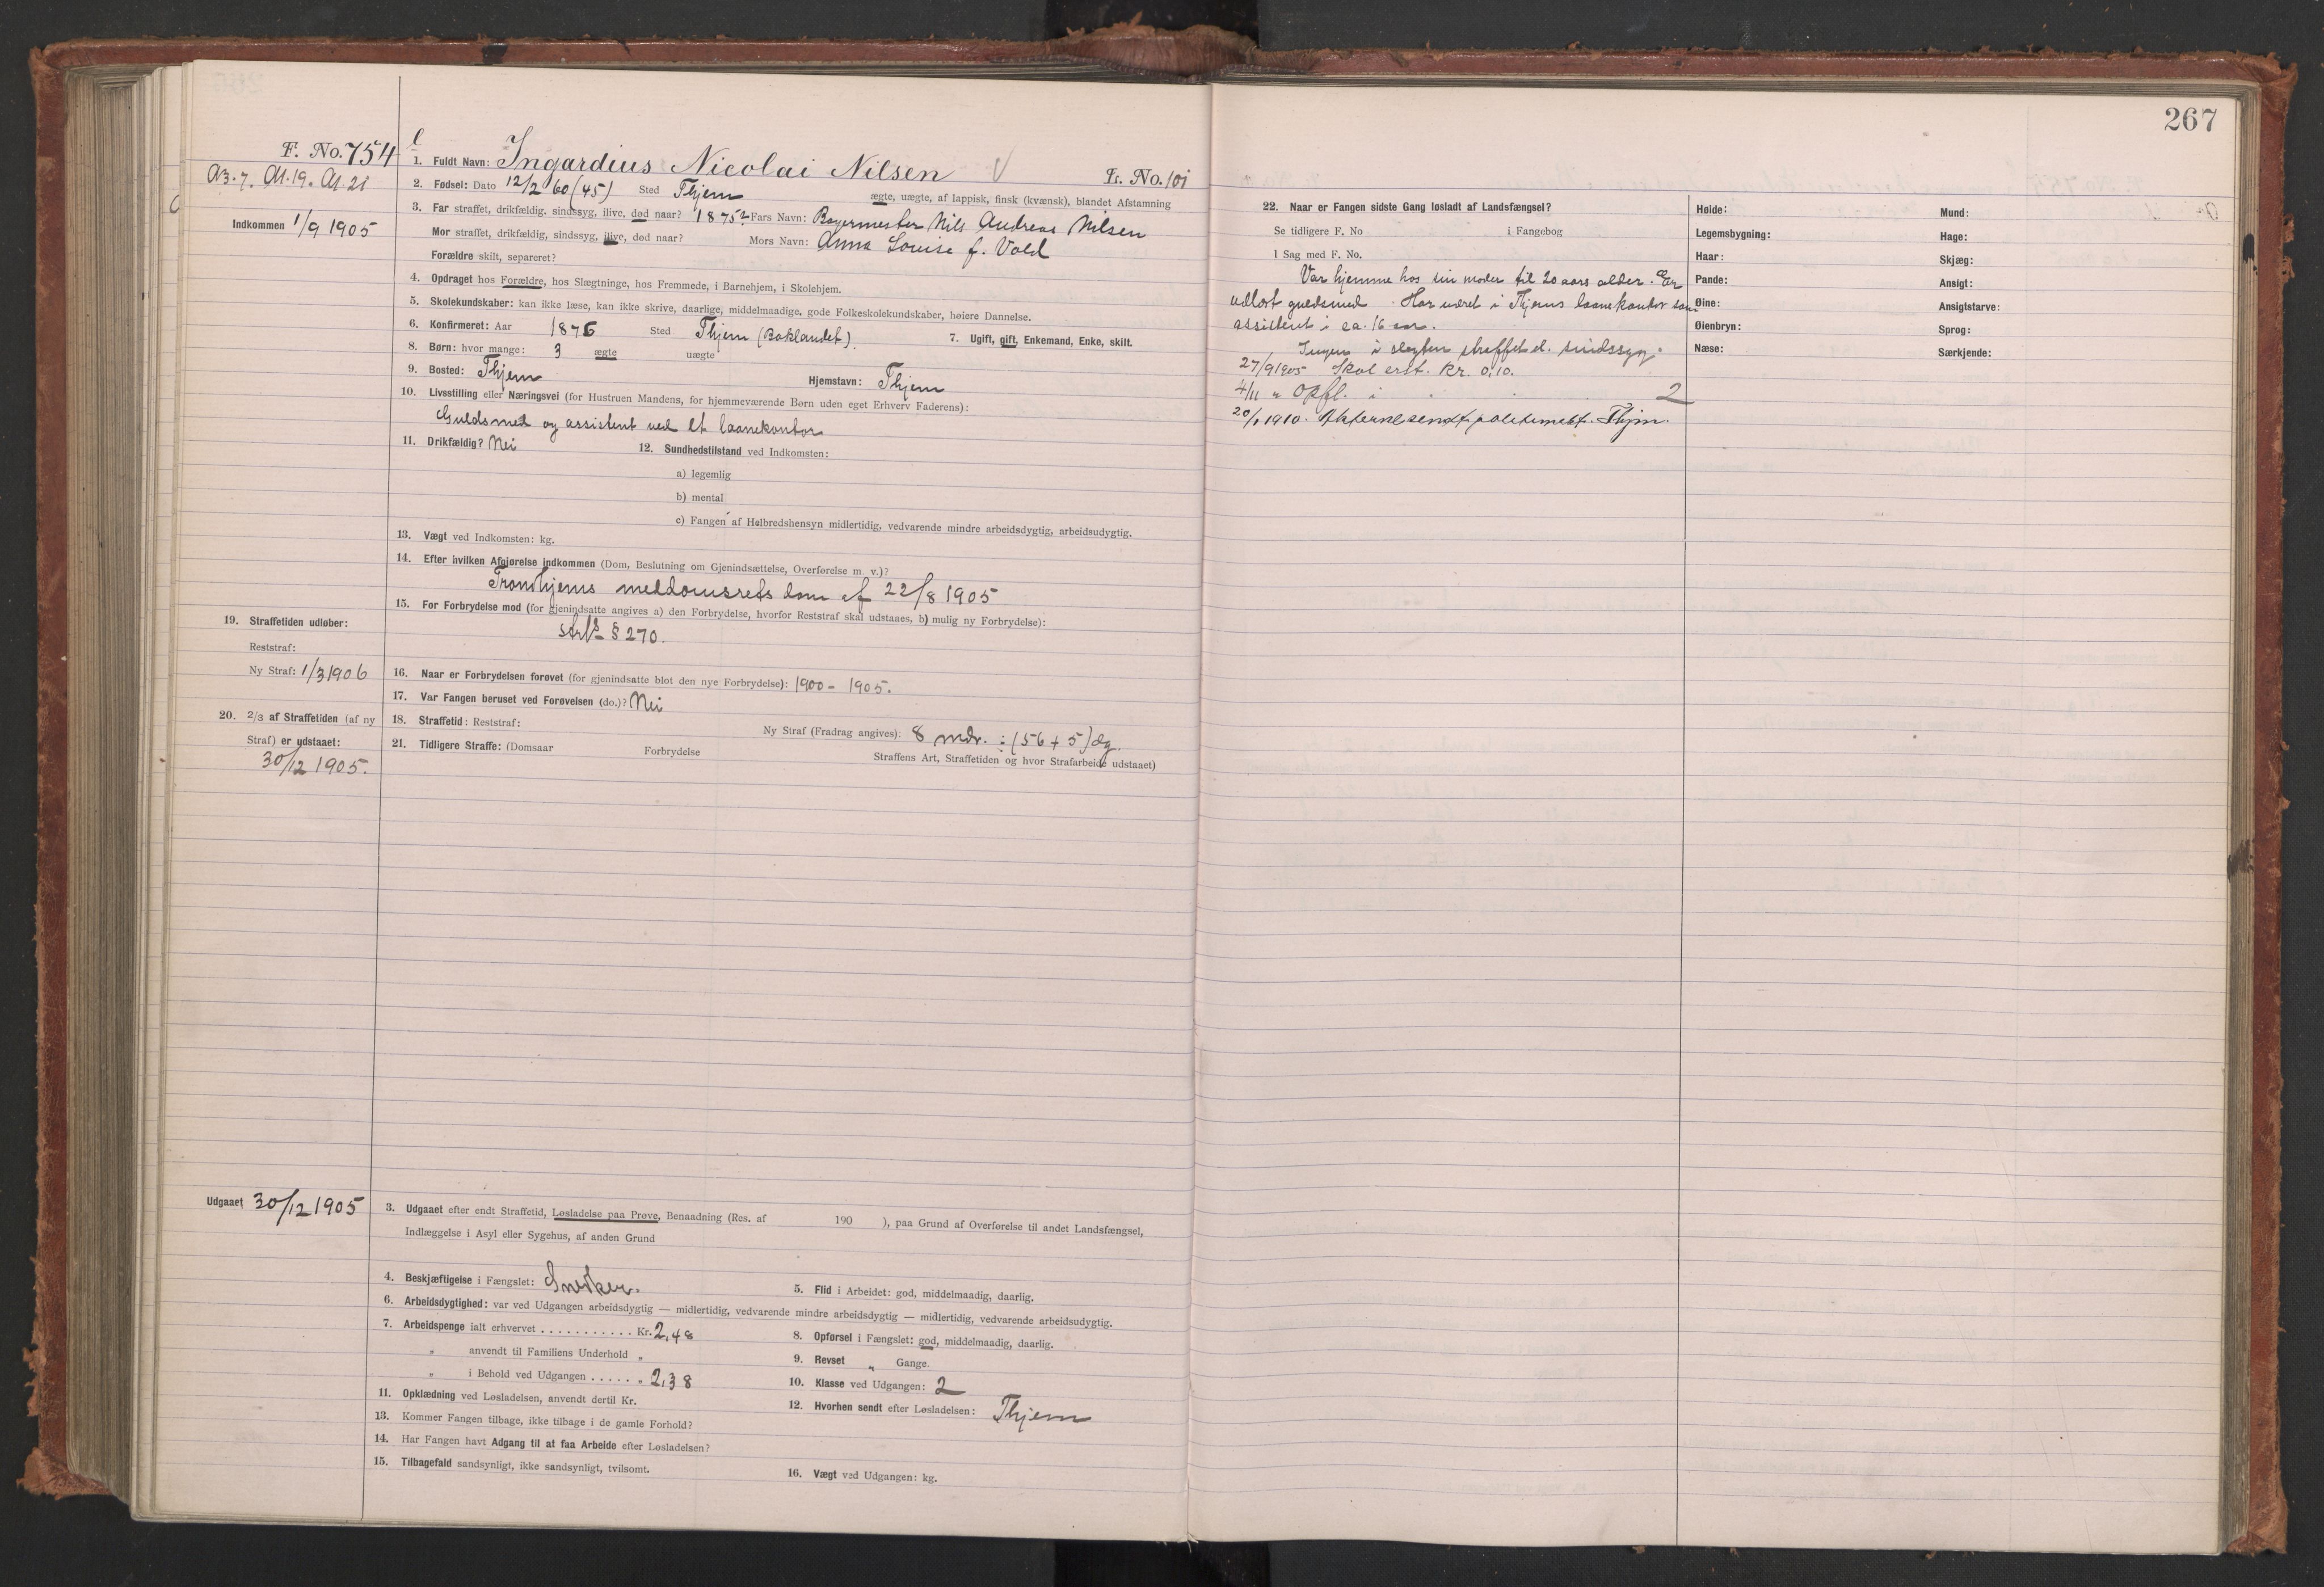 267
F. No. 754
A3.7. A1.19. A1.21
Indkommen 1/9 1905
1. Fuldt Navn: Ingardius Nicolai Nilsen
L. No. 101
2. Fødsel: Dato 12/2 60 (45) Sted Thjem ægte, uægte, af lappisk, finsk (kvænsk), blandet Afstamning
3. Far straffet, drikfældig, sindssyg, ilive, død naar? 1875? Fars Navn: Bøgermester Nils Andreas Nilsen
Mor straffet, drikfældig, sindssyg, ilive, død naar? Mors Navn: Anna Louise f. Vold
Forældre skilt, separeret?
4. Opdraget hos Forældre, hos Slægtninge, hos Fremmede, i Barnehjem, i Skolehjem.
5. Skolekundskaber: kan ikke læse, kan ikke skrive, daarlige, middelmaadige, gode Folkeskolekundskaber, høiere Dannelse.
6. Konfirmeret: Aar 1876 Sted Thjem (Baklandet). 7. Ugift, gift, Enkemand, Enke, skilt.
8. Børn: hvor mange: 3 ægte uægte
9. Bosted: Thjem Hjemstavn: Thjem
10. Livsstilling eller Næringsvei (for Hustruen Mandens, for hjemmeværende Børn uden eget Erhverv Faderens):
Guldsmed og assistent ved et laanekontor
11. Drikfældig? Nei 12. Sundhedstilstand ved Indkomsten:
a) legemlig
b) mental
c) Fangen af Helbredshensyn midlertidig, vedvarende mindre arbeidsdygtig, arbeidsudygtig.
13. Vægt ved Indkomsten: kg.
14. Efter hvilken Afgjørelse indkommen (Dom, Beslutning om Gjenindsættelse, Overførelse m. v.)?
Trondhjems meddomsrets dom af 22/8 1905
15. For Forbrydelse mod (for gjenindsatte angives a) den Forbrydelse, hvorfor Reststraf skal udstaaes, b) mulig ny Forbrydelse):
strl § 270.
19. Straffetiden udløber:
Reststraf:
Ny Straf: 1/3 1906
16. Naar er Forbrydelsen forøvet (for gjenindsatte blot den nye Forbrydelse): 1900 - 1905.
17. Var Fangen beruset ved Forøvelsen (do.)? Nei
20. 2/3 af Straffetiden (af ny
Straf) er udstaaet:
30/12 1905.
18. Straffetid: Reststraf: Ny Straf (Fradrag angives): 8 mdr. ÷ (56 + 5) dg.
21. Tidligere Straffe: (Domsaar Forbrydelse Straffens Art, Straffetiden og hvor Strafarbeide udstaaet)
Udgaaet 30/12 1905
3. Udgaaet efter endt Straffetid, Løsladelse paa Prøve, Benaadning (Res. af 190 ), paa Grund af Overførelse til andet Landsfængsel,
Indlæggelse i Asyl eller Sygehus, af anden Grund
4. Beskjæftigelse i Fængslet: Snedker. 5. Flid i Arbeidet: god, middelmaadig, daarlig.
6. Arbeidsdygtighed: var ved Udgangen arbeidsdygtig — midlertidig, vedvarende mindre arbeidsdygtig — midlertidig, vedvarende arbeidsudygtig.
7. Arbeidspenge ialt erhvervet . . . . . . . . . . . Kr. 2,48 8. Opførsel i Fængslet: god, middelmaadig, daarlig.
„ anvendt til Familiens Underhold „ 9. Revset „ Gange.
„ i Behold ved Udgangen . . . . . „ 2,38 10. Klasse ved Udgangen: 2
11. Opklædning ved Løsladelsen, anvendt dertil Kr. 12. Hvorhen sendt efter Løsladelsen: Thjem
13. Kommer Fangen tilbage, ikke tilbage i de gamle Forhold?
14. Har Fangen havt Adgang til at faa Arbeide efter Løsladelsen?
15. Tilbagefald sandsynligt, ikke sandsynligt, tvilsomt. 16. Vægt ved Udgangen: kg.
22. Naar er Fangen sidste Gang løsladt af Landsfængsel?
Se tidligere F. No i Fangebog
I Sag med F. No.
Var hjemme hos sin moder til 20 aars alder. Er
udlært guldsmed. Har været i Thjems laanekontor som
assistent i ca. 16 aar.
Ingen i slegten straffet el. sindssyg.
27/9 1905 Skal erst. kr. 0,10.
4/11 " Opfl. i 2
20/1 1910. Akterne sendt politimest. Thjm.
Høide: Mund:
Legemsbygning: Hage:
Haar: Skjæg:
Pande: Ansigt:
Øine: Ansigtstarve:
Øienbryn: Sprog:
Næse: Særkjende: